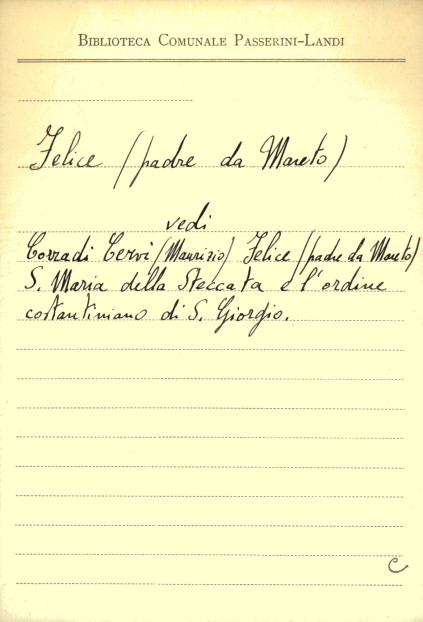 BIBLIOTECA COMUNALE PASSERINI-LANDI
Felice (padre da Mareto)
vedi
Corradi Cervi (Maurizio) Felice (padre da Mareto)
S. Maria della Steccata e l'ordine
costantiniano di S. Giorgio.
C